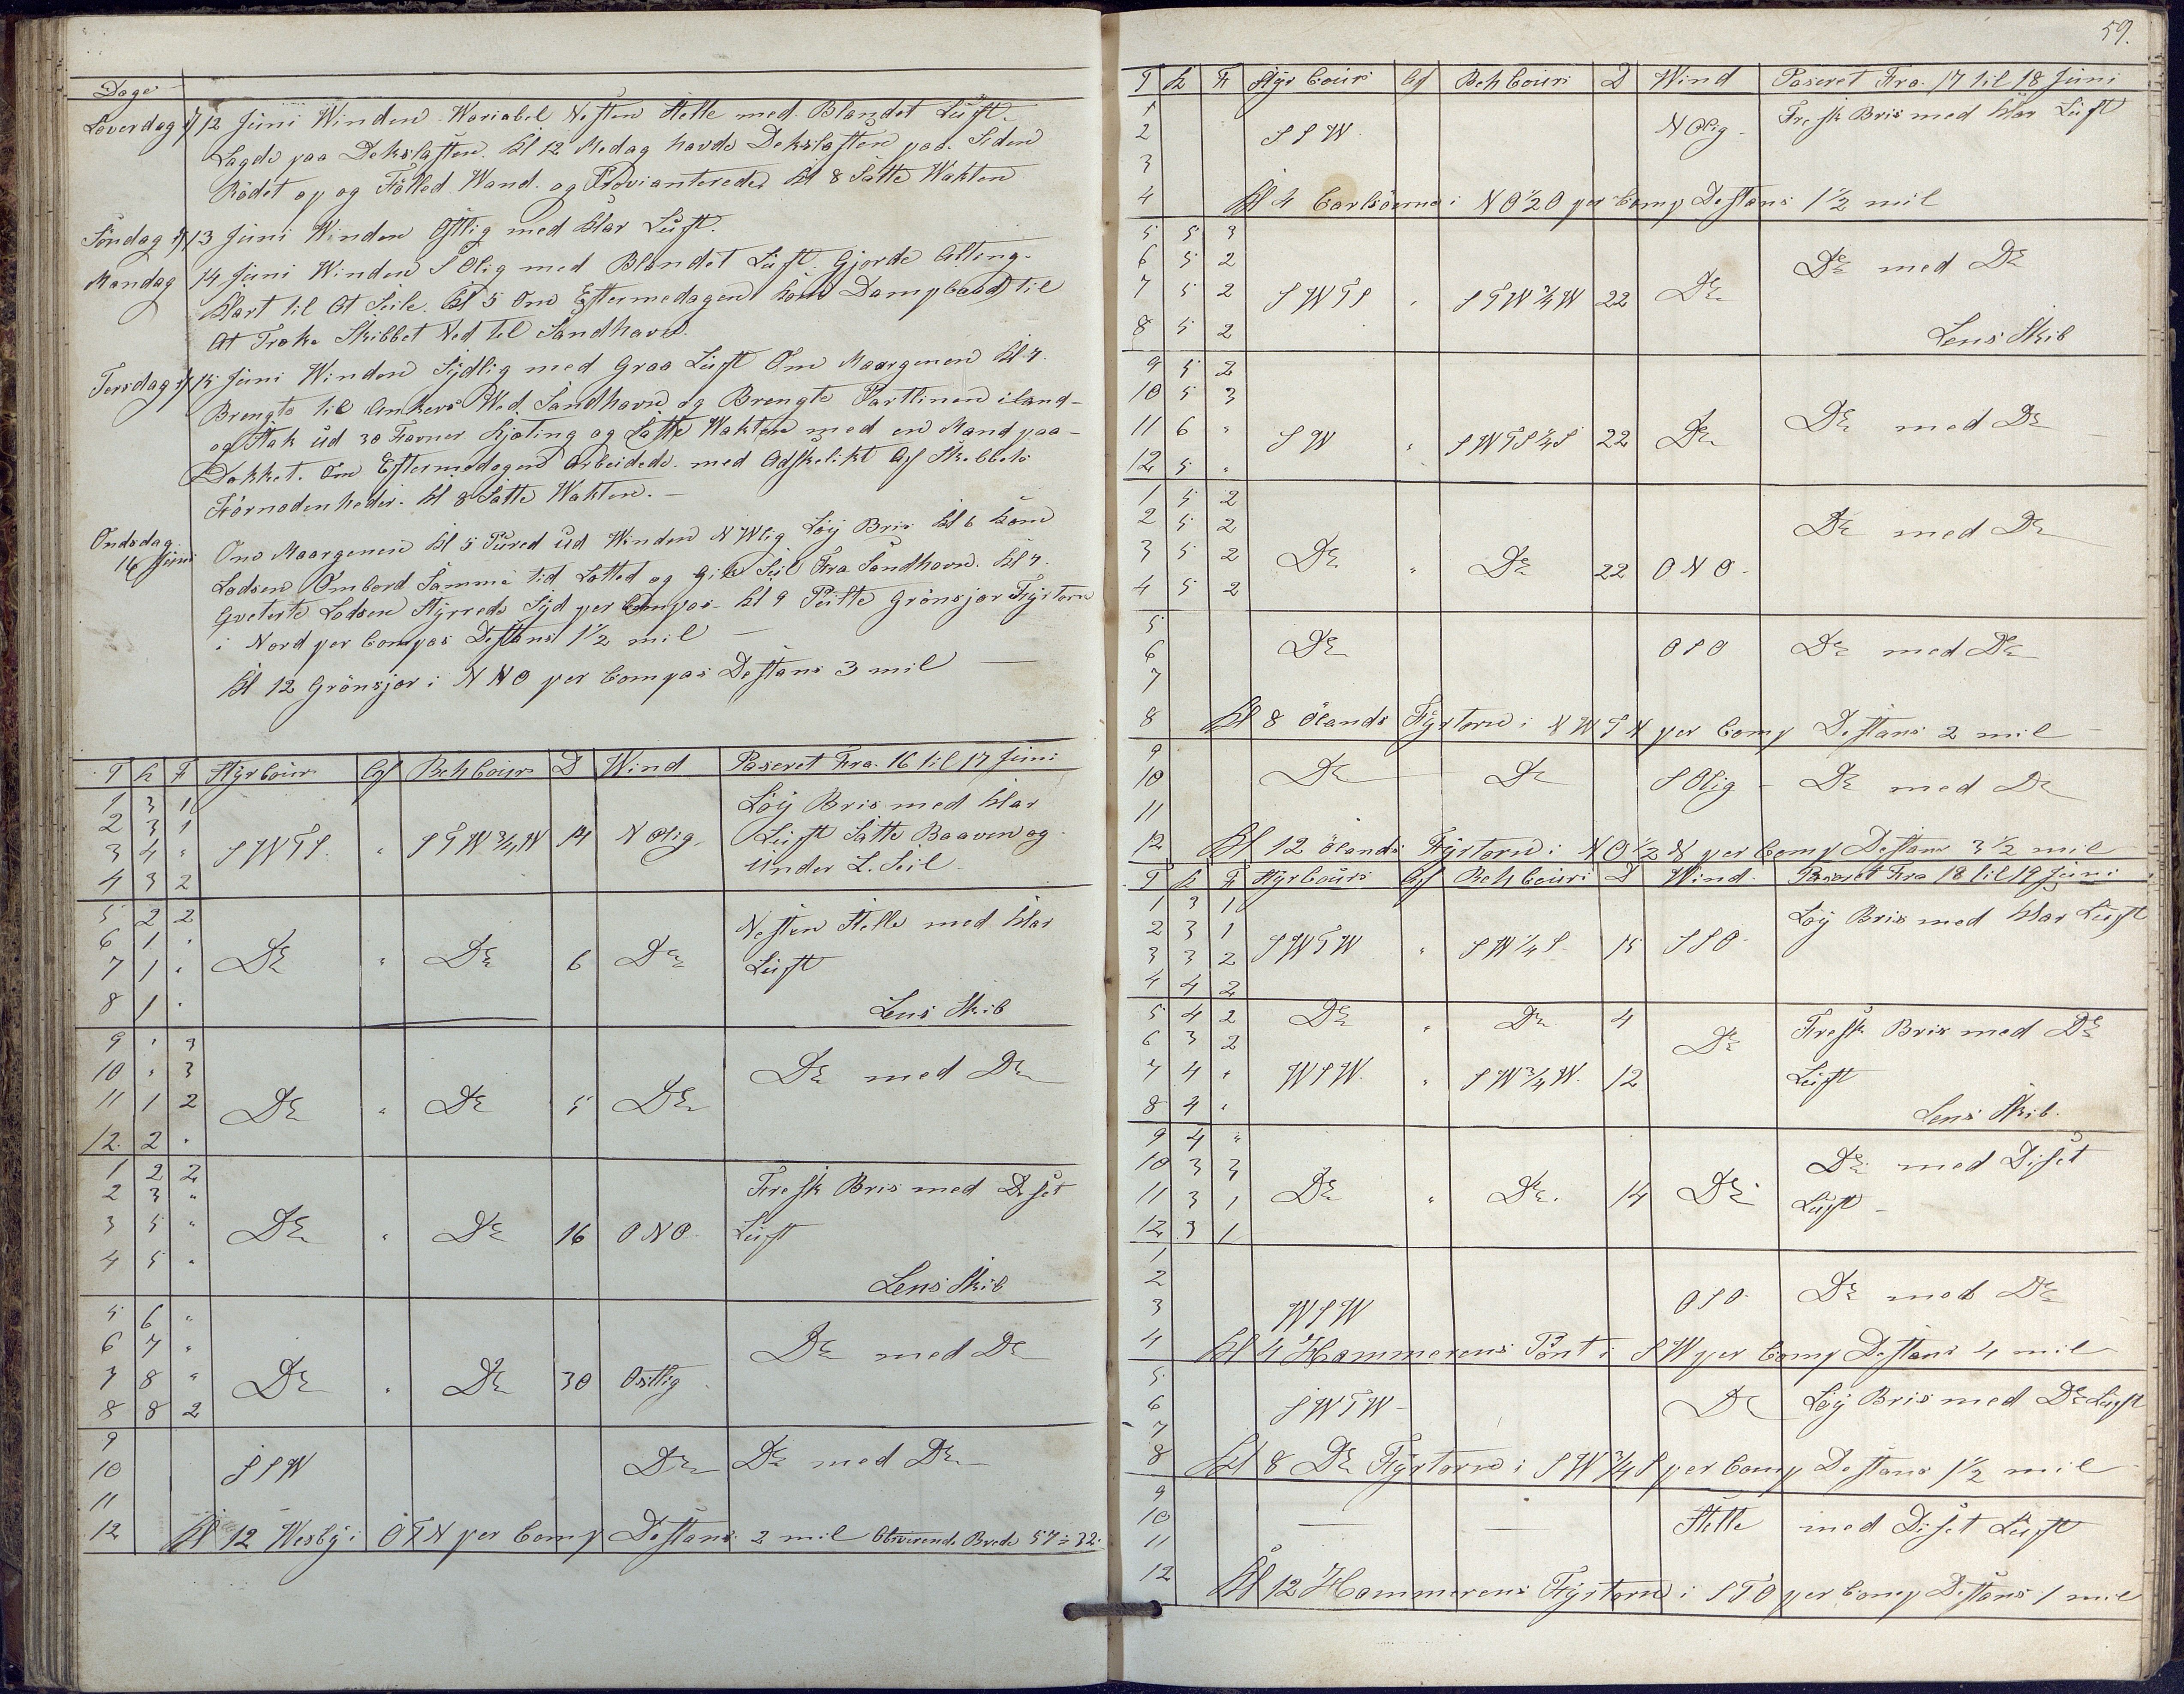 Dage
Löverdag d/ 12 Juni Winden Wariabel Nesten Stelle med Blandet Luft.
Lagde paa Dekslasten. Kl 12 Medag havde Dekslasten paa. Siden
Rödet op og Fölled Wand. og Proviantereder Kl 8 Satte Wakten
Söndag d/ 13 Juni Winden Östlig med Klar Luft.
Mandag 14 Juni Winden S Olig med Blandet Luft. Gjorde Alting
Klart til At Seile. Kl 5 Om Eftermedagen kom Dampbaad til
At Træke Skibbet Ned til Sandhavn.
Tersdag d/ 15 Juni Winden Sydlig med Graa Luft Om Maargenen Kl 7
Brengte til Ankers Wed Sandhavn og Brengte Partlinen iland
og Stak ud 30 Favner Kjæting og Satte Wakten med en Mand paa
Dækket. Om Eftermedagen Arbeidede med Adskelikt Af Skebbets
Förnødenheder. Kl 8 Satte Wakten.
Ondsdag
16 Juni
Om Maargenen Kl 5 Pured ud Winden N Wlig Löy Bris Kl 6 kom
Lodsen Ombord Samme tid Latted og gik Seil Fra Sandhavn. Kl 7
Qveterte Lodsen Styrrede Syd per Compas. Kl 9 Peilte Grönsjær Fyrtorn
i Nord per Compas Destans 1 1/2 mil
Kl 12 Grönsjær i N N O per Compas Destans 3 mil
T K F Styrcours Af Beh Cours D Wind Paseret Fra 16 til 17 Juni
1 3 1 Löy Bris med klar
2 3 1 S W T S. " S T W 3/4 W 14 N Olig Luft Satte Baaven og
3 4 " Under L. Seil
4 3 2
5 2 2 Nesten Stelle med klar
6 1 "
7 1 " Do " Do 6 Do Luft
8 1 " Lens Skib
9 " 3
10 " 3 Do med Do
11 1 2 Do " Do 5 Do
12 2 "
1 2 2 Fresk Bris med Diset
2 3 "
3 5 " Do " Do 16 O N O Luft
4 5 " Lens Skib
5 6 "
6 7 " Do med Do
7 8 " Do " Do 30 Ostlig
8 8 2
9
10 S S W Do Do med Do
11
12 Kl 12 Wesby i O T N per Comp Destans 2 mil Obsverende Brede 57 = 32
59.
T K F Styr Cours Af Beh Cours D Wind Paseret Fra 17 til 18 Juni
1 Fresk Bris med klar Luft
2 S S W N Olig
3
4 Kl 4 Carlsöerne i N O 1/2 O per Comp Destans 1 1/2 mil
5 5 3
6 5 2 Do med Do
7 5 2 S W T S " S T W 3/4 W 22 Do
8 5 2 Lens Skib
9 5 2
10 5 3
11 6 " S W " S W T S 1/4 S 22 Do Do med Do
12 5 "
1 5 2
2 5 2 Do med Do
3 5 2 Do " Do 22 O N O
4 5 2
5
6 Do O S O Do med Do
7
8 Kl 8 Ölands Fyrtorn i N W T N per Comp Destans 2 mil
9
10 Do Do S Olig Do med Do
11
12 Kl 12 Ölands Fyrtorn i N O 1/2 N per Comp Destans 3 1/2 mil
T K F Styrcours Af Beh Cours D Wind Paseret Fra 18 til 19 Juni
1 3 1 Löy Bris med klar Luft
2 3 1
3 3 2 S W T W " S W 1/4 S 15 S S O
4 4 2
5 4 2 Do " Do 4 Fresk Bris med Do
6 3 2 Do
7 4 " W S W " S W 3/4 W 12 Luft
8 4 " Lens Skib
9 4 "
10 3 3 Do med Diset
11 3 1 Do " Do 14 Do Luft
12 3 1
1
2 O S O Do med Do
3 W S W
4 Kl 4 Hammerens Pönt i S W per Comp Destans 4 mil
5
6 S W T W Do Löy Bris med Do Luft
7
8 Kl 8 Do Fyrtorn i S W 3/4 S per Comp Destans 1 1/2 mil
9
10 Stelle med Diset Luft
11
12 Kl 12 Hammerens Fyrtorn i S T O per Comp Destans 1 mil